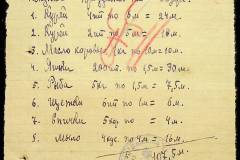 1. Курей 4шт по 6м = 24м.
2. Курей 2шт по 5м = 10м.
3. Масло коровье 1кг по 10м = 10м.
4. Яйки 20шт. по 1,5м = 30м.
5. Риба 5кг по 1,5м = 7,5м.
6. Щетки 6шт по 1м = 6м.
7. Спички 5кор по = 4м.
8. Мыло 4кус. по 4м = 16м.
107,5м.